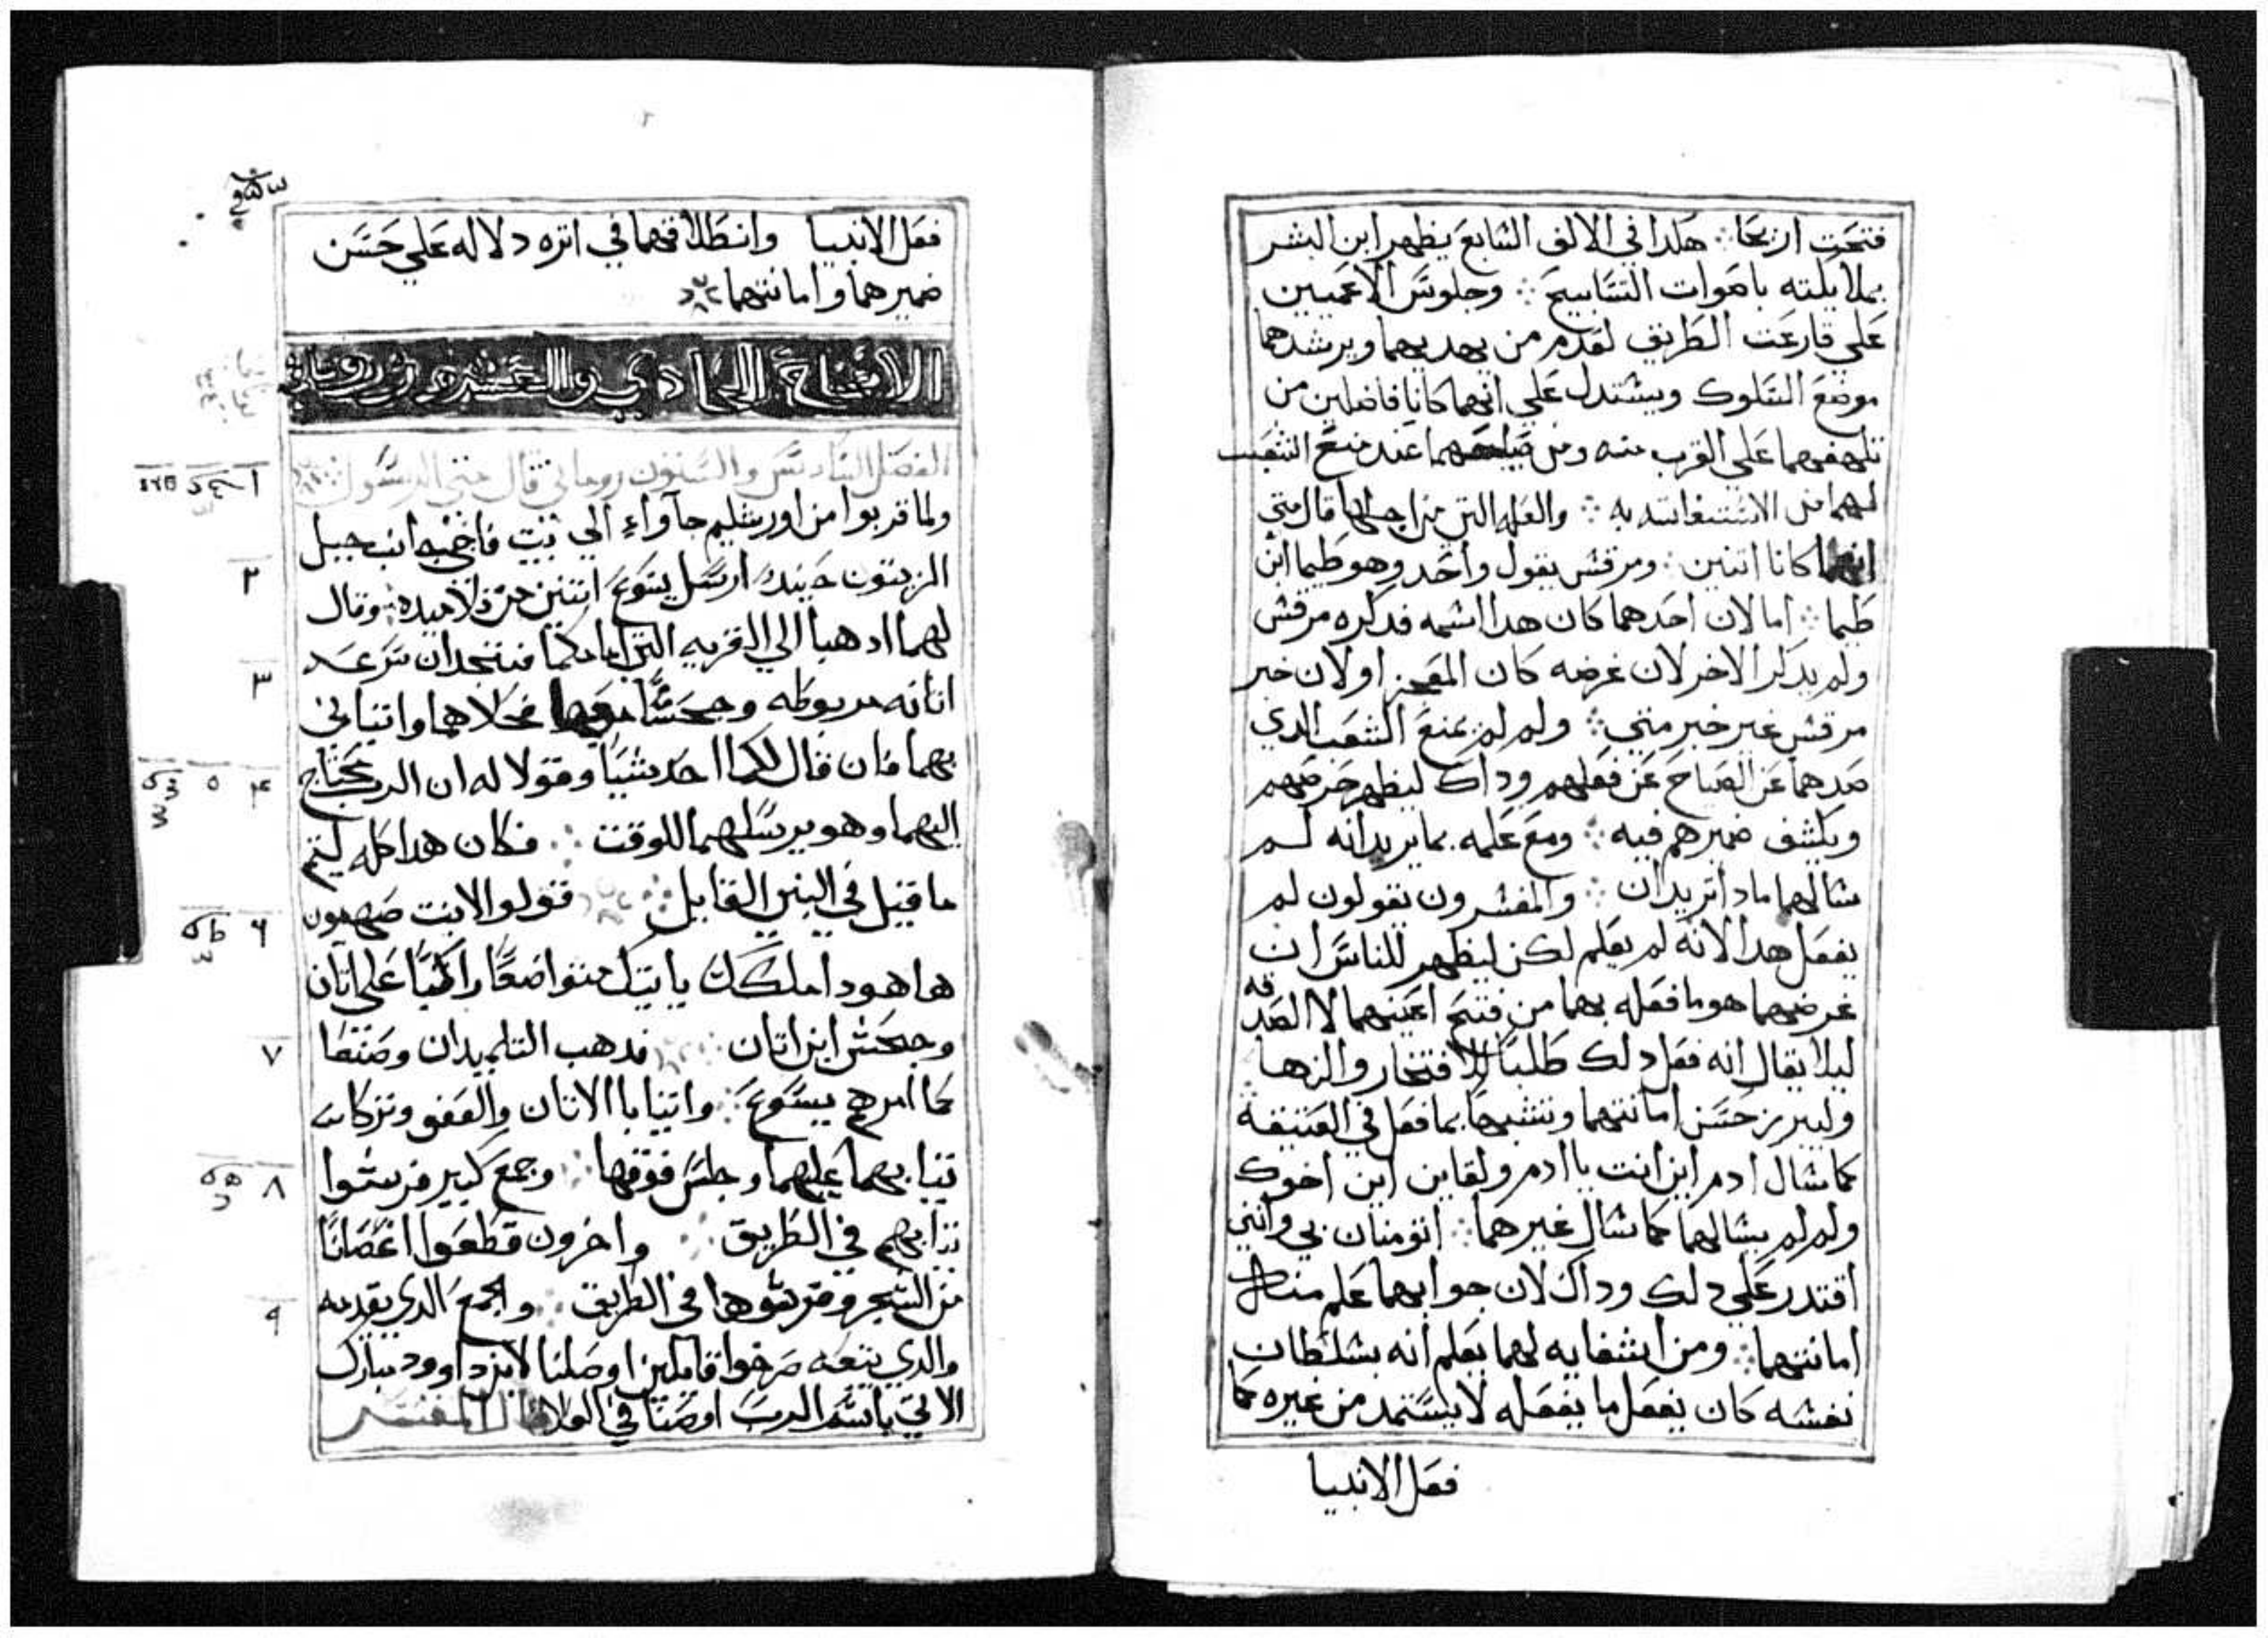 فتحت اريحا ܀ هكدا في الالف السابع يظهر ابن البشر
بملايكته باصوات التسابيح ܀ وجلوس الاعميين
علي قارعت الطريق لعدم من يهديهما ويرشدهما
موضع السلوك ويستدل علي انهما كانا فاضلين من
تلهفهما علي القرب منه ومن صياحهما عند منع الشعب
لهما من الاستغاثه به ܀ والعله التي من اجلها قال متي
انهما كانا اتنين ܀ ومرقس يقول واحد وهو طيما ابن
طيما ܀ اما لان احدهما كان هدا اسمه فدكره مرقس
ولم يدكر الاخر لان غرضه كان المعجز او لان خبر
مرقس غير خبر متي ܀ ولم لم يمنع الشعب الدي
صدهما عن الصياح عن فعلهم وداك ليظهر حرصهم
ويكشف ضميرهم فيه ܀ ومع علمه بما يريدانه لم
سالهما مادا تريدان ܀ والمفسرون يقولون لم
يفعل هدا لانه لم يعلم لكن ليظهر للناس ان
غرضهما هو ما فعله بهما من فتح اعينهما لا الصدقه
ليلا يقال انه فعل دلك طلبا للافتخار والزها
وليبرز حسن امانتهما وتشبها بما فعل في العتيقة
كما سال ادم اين انت يا ادم ولقاين اين اخوك
ولم لم يسالهما كما سال غيرهما ܀ اتومنان بي وانني
اقتدر علي دلك وداك لان جوابهما علم منه
امانتهما ܀ ومن اشفايه لهما يعلم انه بسلطان
نفسه كان يفعل ما يفعله لا يستمد من غيره كما
فعل الانبيا
فعل الانبيا وانطلاقهما في اتره دلاله علي حسن
ضميرهما وامانتهما
الاصحاح الحادي والعشرون روماني
الفصل السادس والستون روماني قال متي الرسول
ولما قربوا من اورشليم جآواء الي بيت فاجي جانب جبل
الزيتون حينيد ارسل يسوع اتنين من تلاميده ܀ وقال
لهما ادهبا الي القريه التي امامكما فستجدان سرعه
اتانه مربوطه وجحشا معها فحلاهما واتياني
بهما فان قال لكما احد شيا وقولا له ان الرب محتاج
اليهما وهو يرسلهما للوقت ܀ فكان هدا كله ليتم
ما قيل في النبي القايل ܀ قولوا لابنت صهيون
ها هودا ملكك ياتيك متواضعا راكبا علي اتان
وجحش ابن اتان ܀ فدهب التلميدان وصنعا
كما امرهم يسوع ܀ واتيا بالاتان والعفو وتركا
تيابهما عليهما وجلس فوقها ܀ وجمع كبير فرشوا
تيابهم في الطريق ܀ واخرون قطعوا اغصانا
من الشجر وفرشوها في الطريق ܀ والجمع الدي يقدمه
والدي يتبعه صرخوا قايلين اوصلنا لابن داوود مبارك
الاتي باسم الرب اوصنا في العلا قال المفسر
٢
٣
٤ ٥
٦
٧
٨
٩